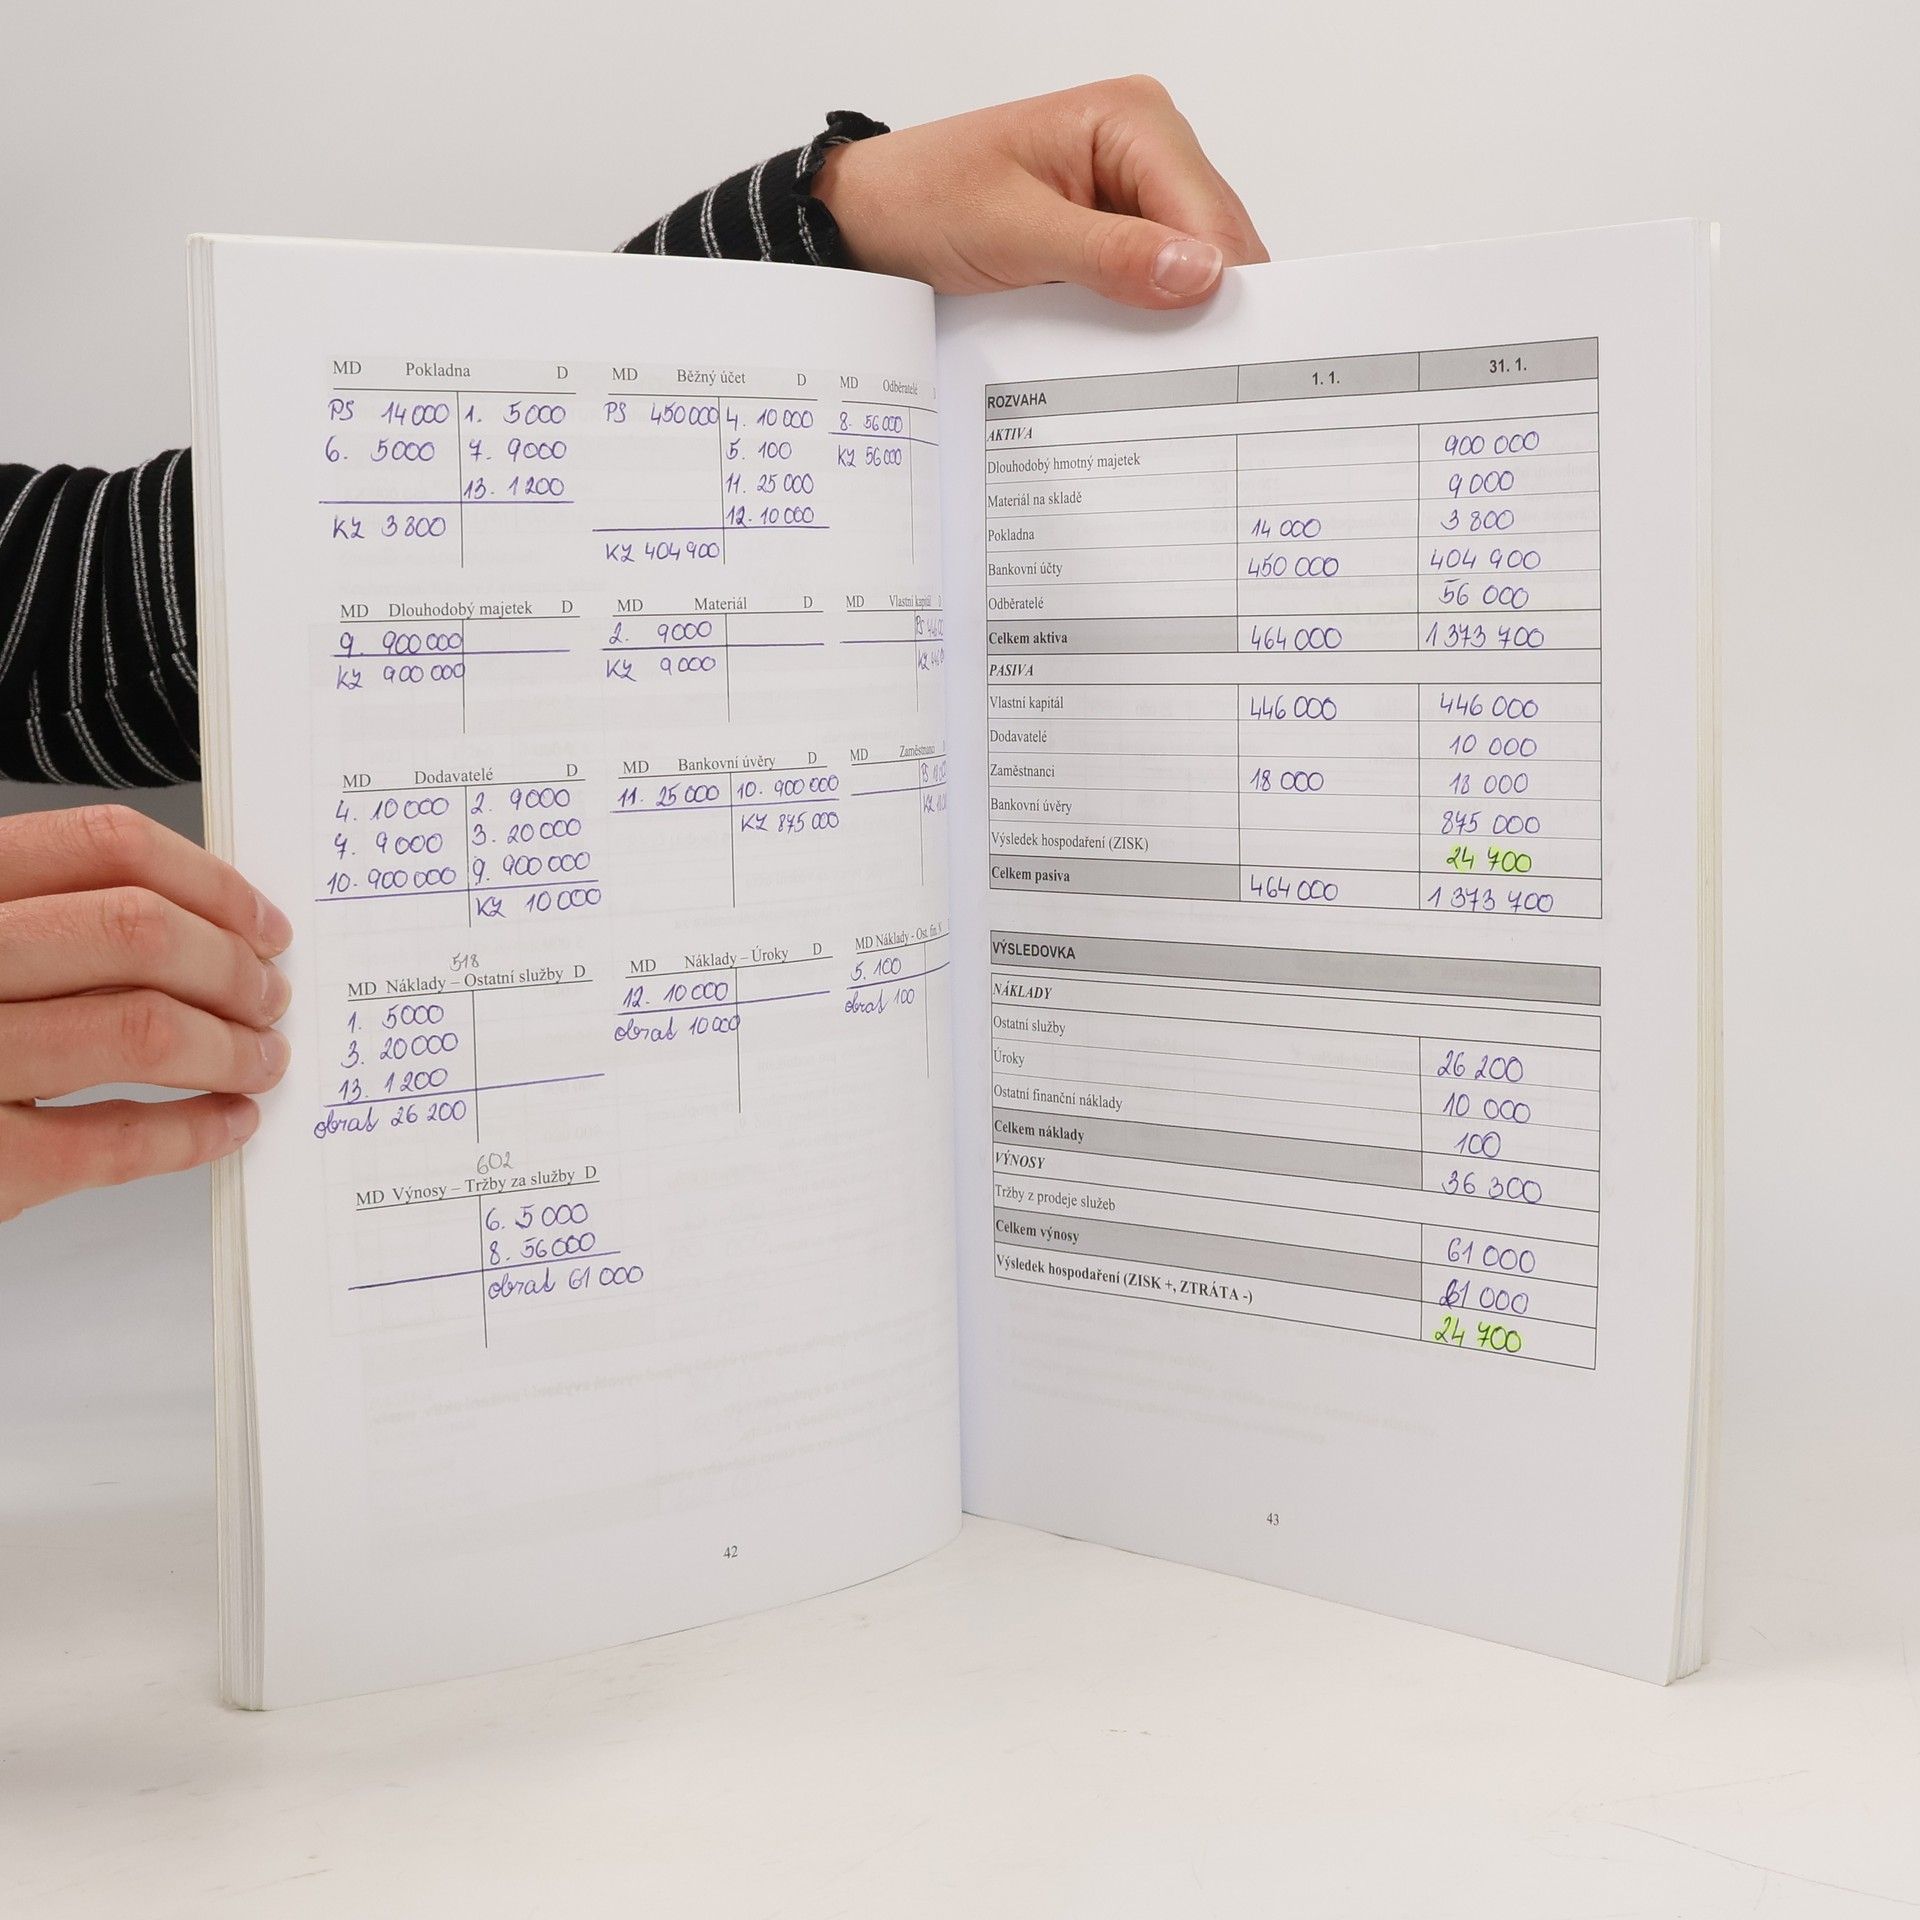 MD Pokladna D
PS 14 000 1. 5 000
6. 5000 7. 9000
13. 1 200
KZ 3 800
MD Běžný účet D
PS 450 000 4. 10 000
5. 100
11. 25 000
12. 10 000
KZ 404 900
MD Odběratelé D
8. 56 000
KZ 56 000
MD Dlouhodobý majetek D
9. 900 000
KZ 900 000
MD Materiál D
2. 9000
KZ 9 000
MD Vlastní kapitál D
PS
KZ
MD Dodavatelé D
4. 10 000 2. 9000
7. 9 000 3. 20 000
10. 900 000 9. 900 000
KZ 10 000
MD Bankovní úvěry D
11. 25 000 10. 900 000
KZ 875 000
MD Zaměstnanci D
PS
KZ
518
MD Náklady – Ostatní služby D
1. 5000
3. 20 000
13. 1 200
obrat 26 200
MD Náklady – Úroky D
12. 10 000
obrat 10 000
MD Náklady - Ost. fin.
5. 100
obrat 100
602
MD Výnosy – Tržby za služby D
6. 5 000
8. 56 000
obrat 61 000
42
ROZVAHA 1. 1. 31. 1.
AKTIVA
Dlouhodobý hmotný majetek 900 000
Materiál na skladě 9 000
Pokladna 14 000 3 800
Bankovní účty 450 000 404 900
Odběratelé 56 000
Celkem aktiva 464 000 1 373 700
PASIVA
Vlastní kapitál 446 000 446 000
Dodavatelé 10 000
Zaměstnanci 18 000 18 000
Bankovní úvěry 875 000
Výsledek hospodaření (ZISK) 24 700
Celkem pasiva 464 000 1 373 700
VÝSLEDOVKA
NÁKLADY
Ostatní služby 26 200
Úroky 10 000
Ostatní finanční náklady 100
Celkem náklady 36 300
VÝNOSY
Tržby z prodeje služeb 61 000
Celkem výnosy 61 000
Výsledek hospodaření (ZISK +, ZTRÁTA -) 24 700
43